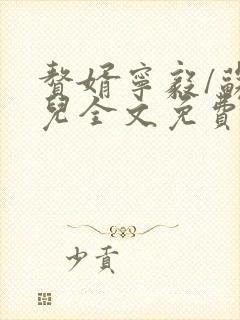 贅婿寧毅/蘇
兒全文免費
少貢